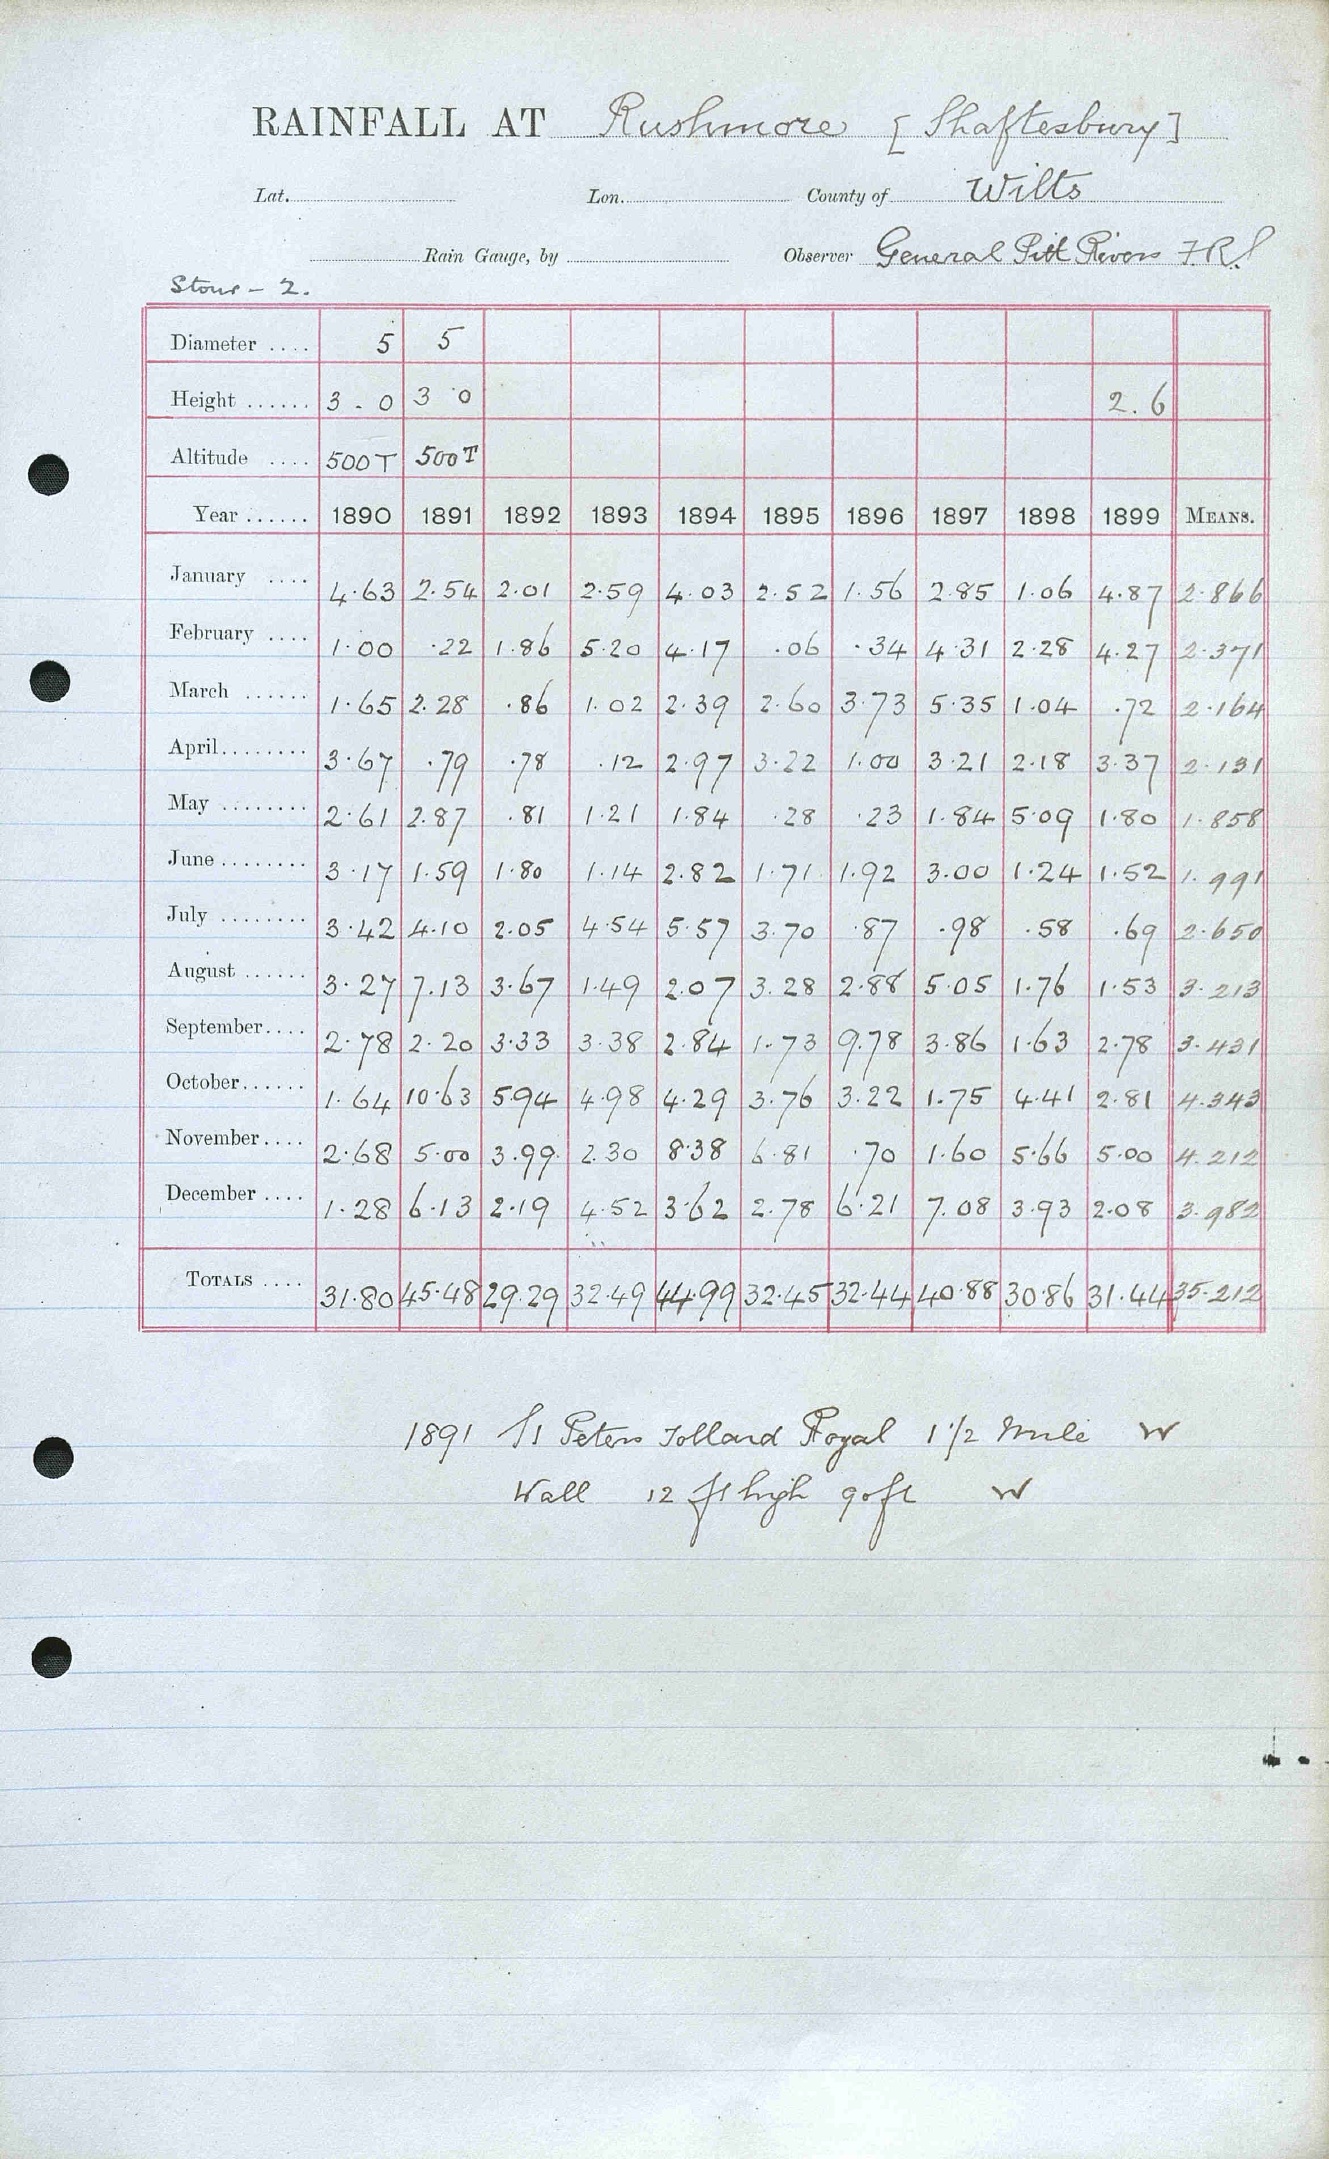 RAINFALL AT Rushmore [Shaftesbury]
Lat. Lon. County of Wilts
Rain Gauge, by Observer General Pitt Rivers F.R.S
Stour - 2.
Diameter .... 5 5
Height ...... 3 - 0 3 0 2.6
Altitude .... 500T 500T
Year ...... 1890 1891 1892 1893 1894 1895 1896 1897 1898 1899 MEANS.
January .... 4.63 2.54 2.01 2.59 4.03 2.52 1.56 2.85 1.06 4.87 2.866
February .... 1.00 .22 1.86 5.20 4.17 .06 .34 4.31 2.28 4.27 2.371
March ...... 1.65 2.28 .86 1.02 2.39 2.60 3.73 5.35 1.04 .72 2.164
April........ 3.67 .79 .78 .12 2.97 3.22 1.00 3.21 2.18 3.37 2.131
May ........ 2.61 2.87 .81 1.21 1.84 .28 .23 1.84 5.09 1.80 1.858
June ........ 3.17 1.59 1.80 1.14 2.82 1.71 1.92 3.00 1.24 1.52 1.991
July ........ 3.42 4.10 2.05 4.54 5.57 3.70 .87 .98 .58 .69 2.650
August ...... 3.27 7.13 3.67 1.49 2.07 3.28 2.88 5.05 1.76 1.53 3.213
September.... 2.78 2.20 3.33 3.38 2.84 1.73 9.78 3.86 1.63 2.78 3.431
October...... 1.64 10.63 5.94 4.98 4.29 3.76 3.22 1.75 4.41 2.81 4.343
November.... 2.68 5.00 3.99 2.30 8.38 6.81 .70 1.60 5.66 5.00 4.212
December .... 1.28 6.13 2.19 4.52 3.62 2.78 6.21 7.08 3.93 2.08 3.982
TOTALS .... 31.80 45.48 29.29 32.49 44.99 32.45 32.44 40.88 30.86 31.44 35.212
1891 St Peters Tollard Royal 1 1/2 Mile W
Wall 12 ft high 90ft W